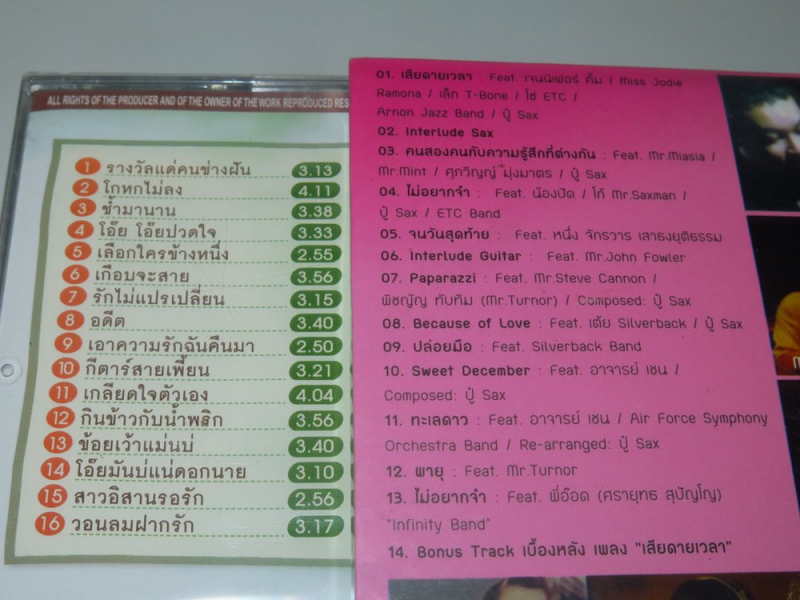 ALL RIGHTS OF THE PRODUCER AND OF THE OWNER OF THE WORK REPRODUCED RES
1 รางวัลแด่คนช่างฝัน 3.13
2 โกหกไม่ลง 4.11
3 ช้ำมานาน 3.38
4 โอ๊ย โอ๊ยปวดใจ 3.33
5 เลือกใครข้างหนึ่ง 2.55
6 เกือบจะสาย 3.56
7 รักไม่แปรเปลี่ยน 3.15
8 อดีต 3.40
9 เอาความรักฉันคืนมา 2.50
10 กีตาร์สายเพี้ยน 3.21
11 เกลียดใจตัวเอง 4.04
12 กินข้าวกับน้ำพริก 3.56
13 ข้อยเว้าแม่นบ่ 3.40
14 โอ๊ยมันบ่แน่ดอกนาย 3.10
15 สาวอิสานรอรัก 2.56
16 วอนลมฝากรัก 3.17
01. เสียดายเวลา : Feat. เจนนิเฟอร์ คิ้ม / Miss Jodie
Ramona / เล็ก T-Bone / โซ่ ETC /
Arnon Jazz Band / ปู่ Sax
02. Interlude Sax
03. คนสองคนกับความรู้สึกที่ต่างกัน : Feat. Mr.Miasia /
Mr.Mint / ศุภวิญญ์ มุ่งมาตร / ปู่ Sax
04. ไม่อยากจำ : Feat. น้องปิด / โก้ Mr.Saxman /
ปู่ Sax / ETC Band
05. จนวันสุดท้าย : Feat. หนึ่ง จักรวาร เสาธงยุติธรรม
06. Interlude Guitar : Feat. Mr.John Fowler
07. Paparazzi : Feat. Mr.Steve Cannon /
พิชญัญ ทับทิม (Mr.Turnor) / Composed: ปู่ Sax
08. Because of Love : Feat. เต้ย Silverback / ปู่ Sax
09. ปล่อยมือ : Feat. Silverback Band
10. Sweet December : Feat. อาจารย์ เชน /
Composed: ปู่ Sax
11. ทะเลดาว : Feat. อาจารย์ เชน / Air Force Symphony
Orchestra Band / Re-arranged: ปู่ Sax
12. พายุ : Feat. Mr.Turnor
13. ไม่อยากจำ : Feat. พี่อ๊อด (ศรายุทธ สุปัญโญ)
"Infinity Band"
14. Bonus Track เบื้องหลัง เพลง "เสียดายเวลา"